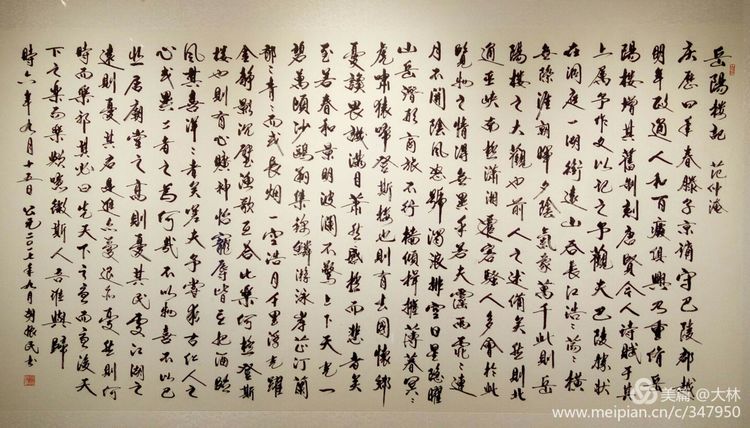 岳陽樓記 范仲淹
庆歷四年春滕子京謫守巴陵郡越
明年政通人和百廢俱興乃重脩岳
陽樓增其舊制刻唐賢今人詩賦于其
上属予作文以記之予觀夫巴陵勝狀
在洞庭一湖銜遠山吞長江浩〻蕩橫
無際涯朝暉夕陰氣象萬千此則岳
陽樓之大觀也前人之述備矣然則北
通巫峽南極瀟湘遷客騷人多會於此
覽物之情得無異乎若夫霪雨霏〻連
月不開陰風怒號濁浪排空日星隱曜
山岳潛形商旅不行檣傾楫摧薄暮冥〻
虎嘯猿啼登斯樓也則有去國懷鄉
憂讒畏譏滿目蕭然感極而悲者矣
至若春和景明波瀾不驚上下天光一
碧萬頃沙鷗翔集錦鱗游泳岸芷汀蘭
郁〻青〻而或長煙一空浩月千里浮光躍
金静影沉璧漁歌互答此樂何極登斯
樓也則有心曠神怡寵辱皆忘把酒臨
風其喜洋〻者矣嗟夫予嘗求古仁人之
心或異二者之為何哉不以物喜不以己
悲居廟堂之高則憂其民處江湖之
遠則憂其君是進亦憂退亦憂然則何
時而樂耶其必曰先天下之憂而憂後天
下之樂而樂歟噫微斯人吾誰與歸
時六年九月十五日 公元二〇一七年九月 胡振民書
美篇 @大林
www.meipian.cn/c/347950